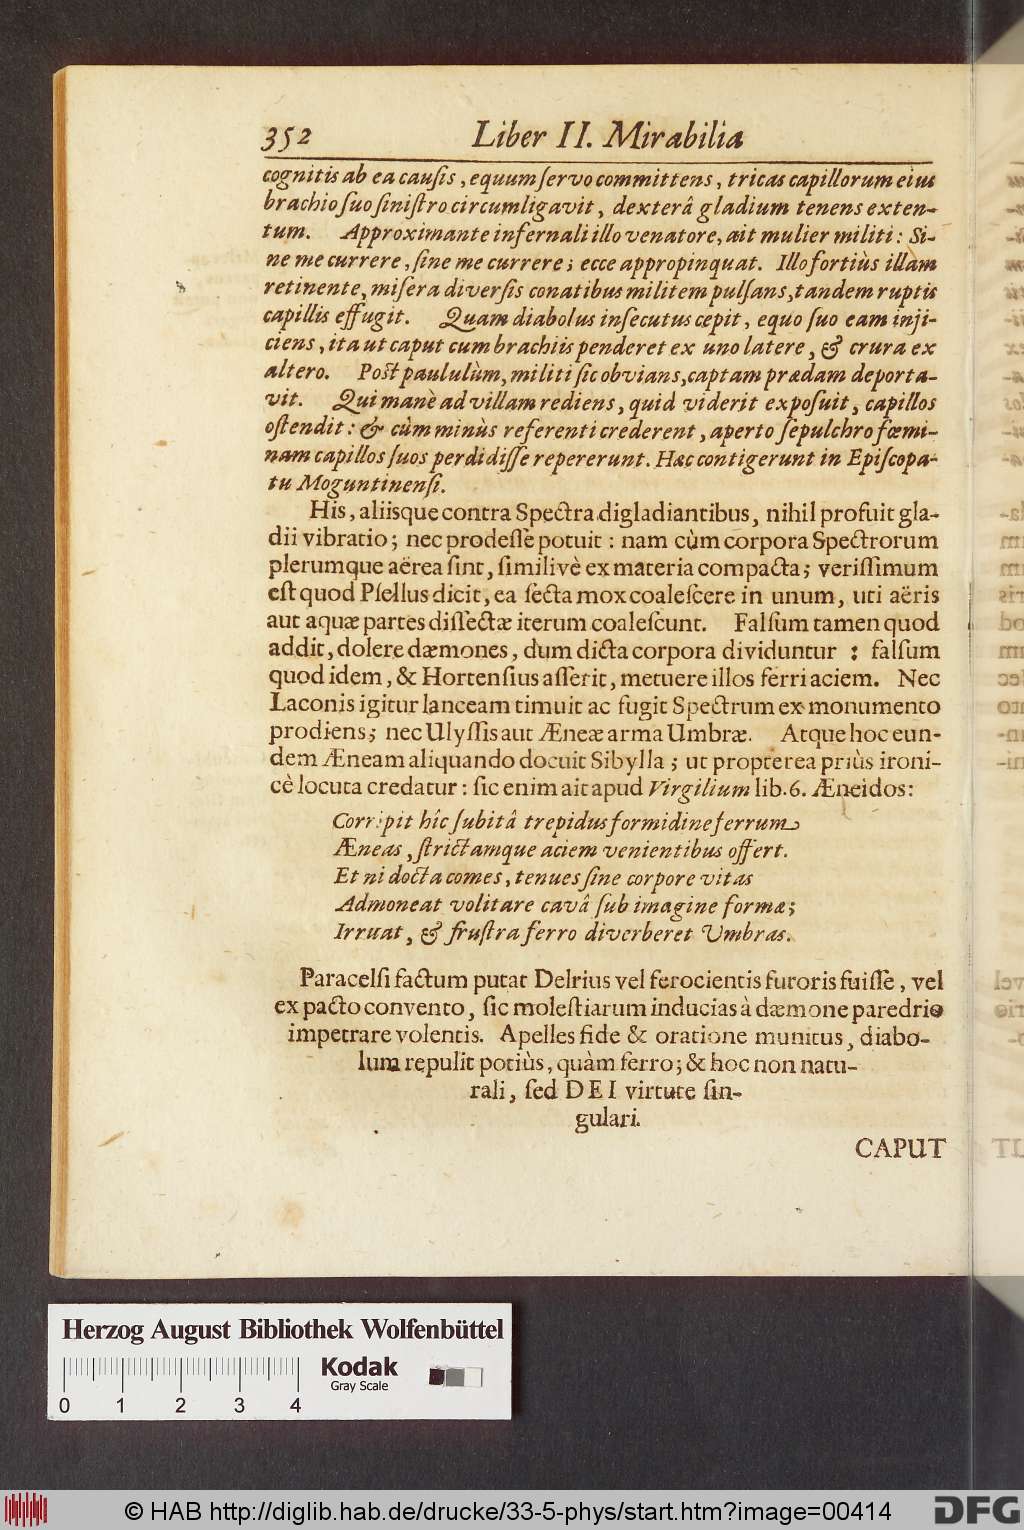 352 Liber II. Mirabilia
cognitis ab ea causis, equum servo committens, tricas capillorum eius
brachio suo sinistro circumligavit, dexterâ gladium tenens exten-
tum. Approximante infernali illo venatore, ait mulier militi: Si-
ne me currere, sine me currere; ecce appropinquat. Illo fortiùs illam
retinente, misera diversis conatibus militem pulsans, tandem ruptis
capillis effugit. Quam diabolus insecutus cepit, equo suo eam inji-
ciens, ita ut caput cum brachiis penderet ex uno latere, & crura ex
altero. Post paululùm, militi sic obvians, captam prædam deporta-
vit. Qui manè ad villam rediens, quid viderit exposuit, capillos
ostendit: & cùm minùs referenti crederent, aperto sepulchro fœmi-
nam capillos suos perdidisse repererunt. Hæc contigerunt in Episcopa-
tu Moguntinensi.
His, aliisque contra Spectra digladiantibus, nihil profuit gla-
dii vibratio; nec prodesse potuit: nam cùm corpora Spectrorum
plerumque aërea sint, similivè ex materia compacta; verissimum
est quod Psellus dicit, ea secta mox coalescere in unum, uti aëris
aut aquæ partes dissectæ iterum coalescunt. Falsum tamen quod
addit, dolere dæmones, dum dicta corpora dividuntur: falsum
quod idem, & Hortensius asserit, metuere illos ferri aciem. Nec
Laconis igitur lanceam timuit ac fugit Spectrum ex monumento
prodiens; nec Ulyssis aut Æneæ arma Umbræ. Atque hoc eun-
dem Æneam aliquando docuit Sibylla; ut propterea priùs ironi-
cè locuta credatur: sic enim ait apud Virgilium lib. 6. Æneidos:
Corripit hîc subitâ trepidus formidine ferrum
Æneas, strictamque aciem venientibus offert.
Et ni docta comes, tenues sine corpore vitas
Admoneat volitare cavâ sub imagine formæ;
Irruat, & frustra ferro diverberet Umbras.
Paracelsi factum putat Delrius vel ferocientis furoris fuisse, vel
ex pacto convento, sic molestiarum inducias à dæmone paredrio
impetrare volentis. Apelles fide & oratione munitus, diabo-
lum repulit potiùs, quàm ferro; & hoc non natu-
rali, sed DEI virtute sin-
gulari.
CAPUT
Herzog August Bibliothek Wolfenbüttel
Kodak
Gray Scale
0 1 2 3 4
© HAB http://diglib.hab.de/drucke/33-5-phys/start.htm?image=00414
DFG